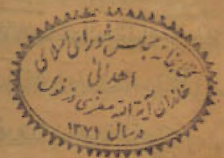 کتابخانه مجلس شورای اسلامی
اهدائی
خاندان آیة الله صفری دزفولی
در سال ۱۳۷۱